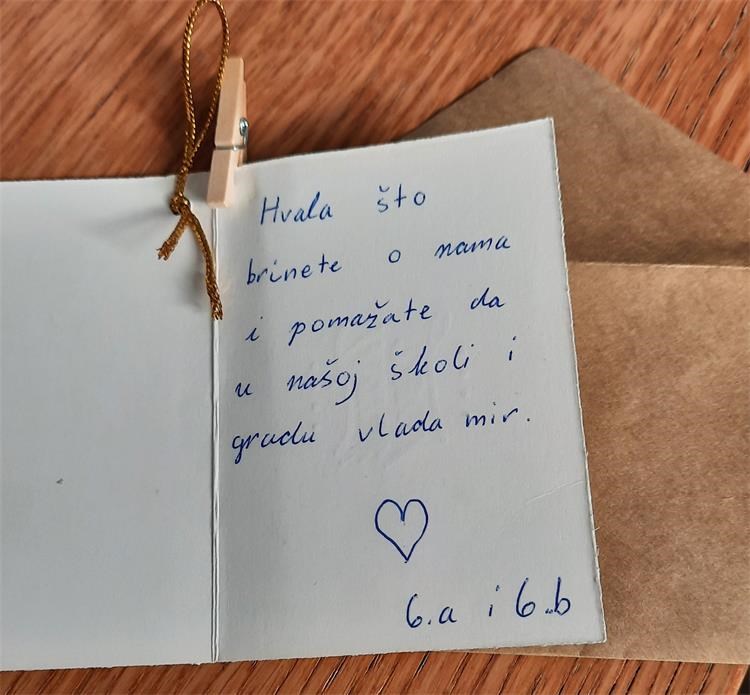 Hvala što
brinete o nama
i pomažate da
u našoj školi i
gradu vlada mir.
6.a i 6.b